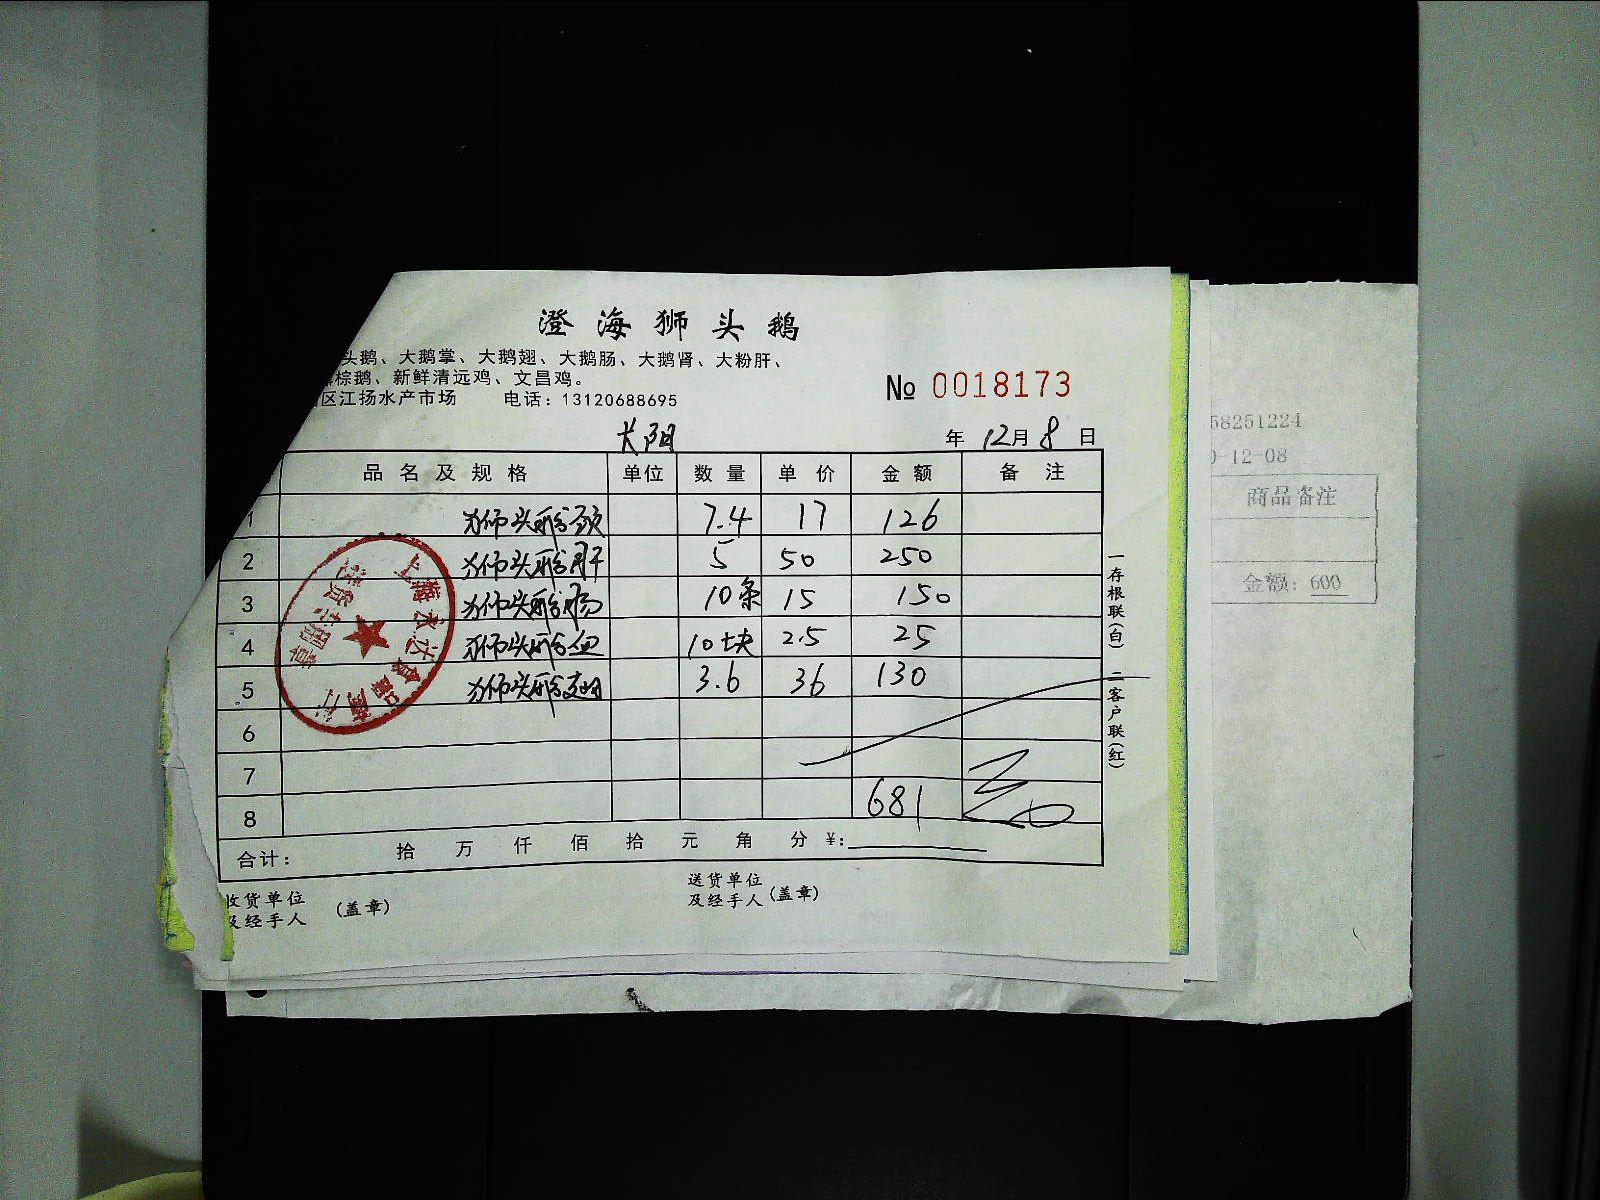 澄海狮头鹅
头鹅、大鹅掌、大鹅翅、大鹅肠、大鹅肾、大粉肝、
棕鹅、新鲜清远鸡、文昌鸡。
区江扬水产市场 电话：13120688695
№ 0018173
年 12月 8 日
品名及规格 单位 数量 单价 金额 备注
1 狮头鹅颈 7.4 17 126
2 狮头鹅肝 5 50 250
3 狮头鹅肠 10条 15 150
4 狮头鹅血 10块 2.5 25
5 狮头鹅 3.6 36 130
6
7
8 681
合计： 拾 万 仟 佰 拾 元 角 分 ¥：
收货单位
及经手人 （盖章）
送货单位
及经手人（盖章）
一存根联（白） 二客户联（红）
上海 达食品商行
送货专用章
58251224
-12-08
商品备注
金额：600